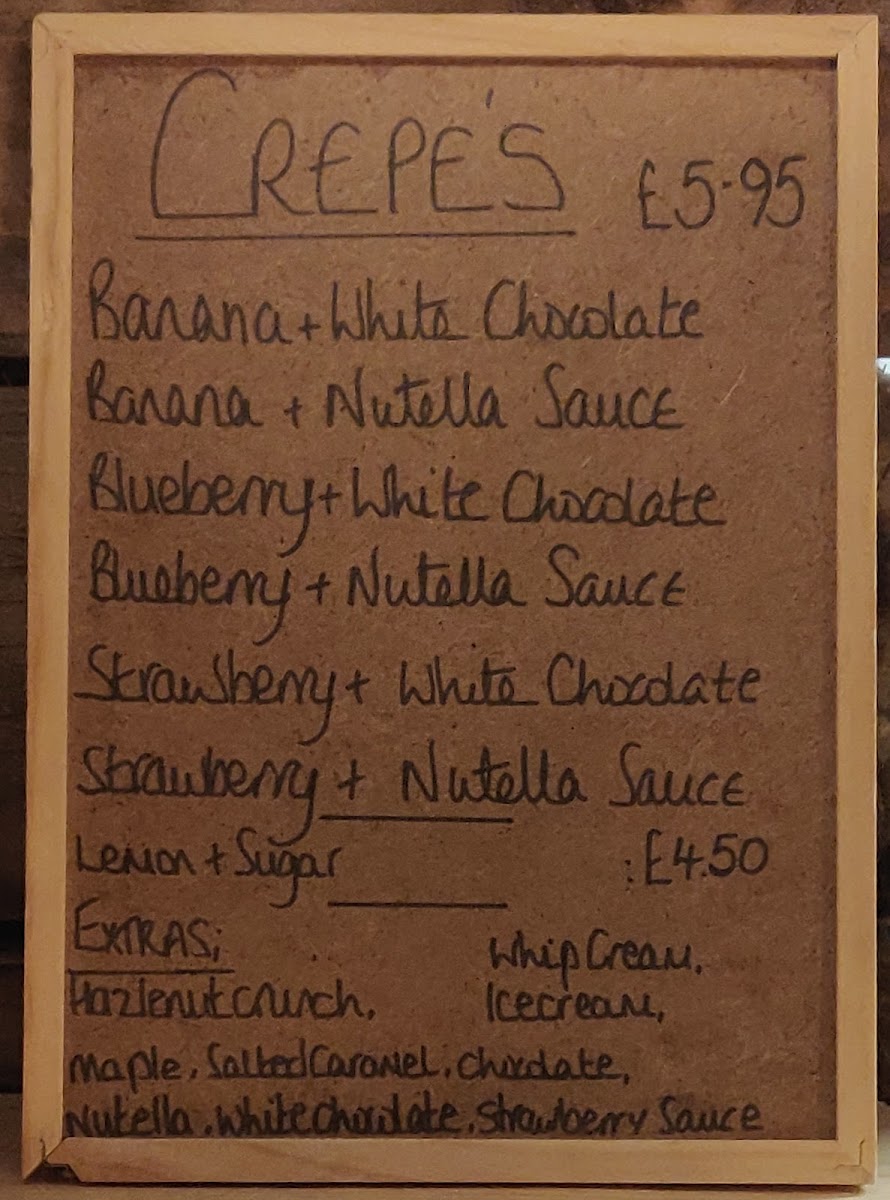 CREPE'S £5.95
Banana + White Chocolate
Banana + Nutella Sauce
Blueberry + White Chocolate
Blueberry + Nutella Sauce
Strawberry + White Chocolate
Strawberry + Nutella Sauce
Lemon + Sugar :£4.50
EXTRAS; Whip Cream,
Hazlenut crunch, Icecream,
Maple, Salted Caramel, chocolate,
Nutella, white chocolate, strawberry Sauce